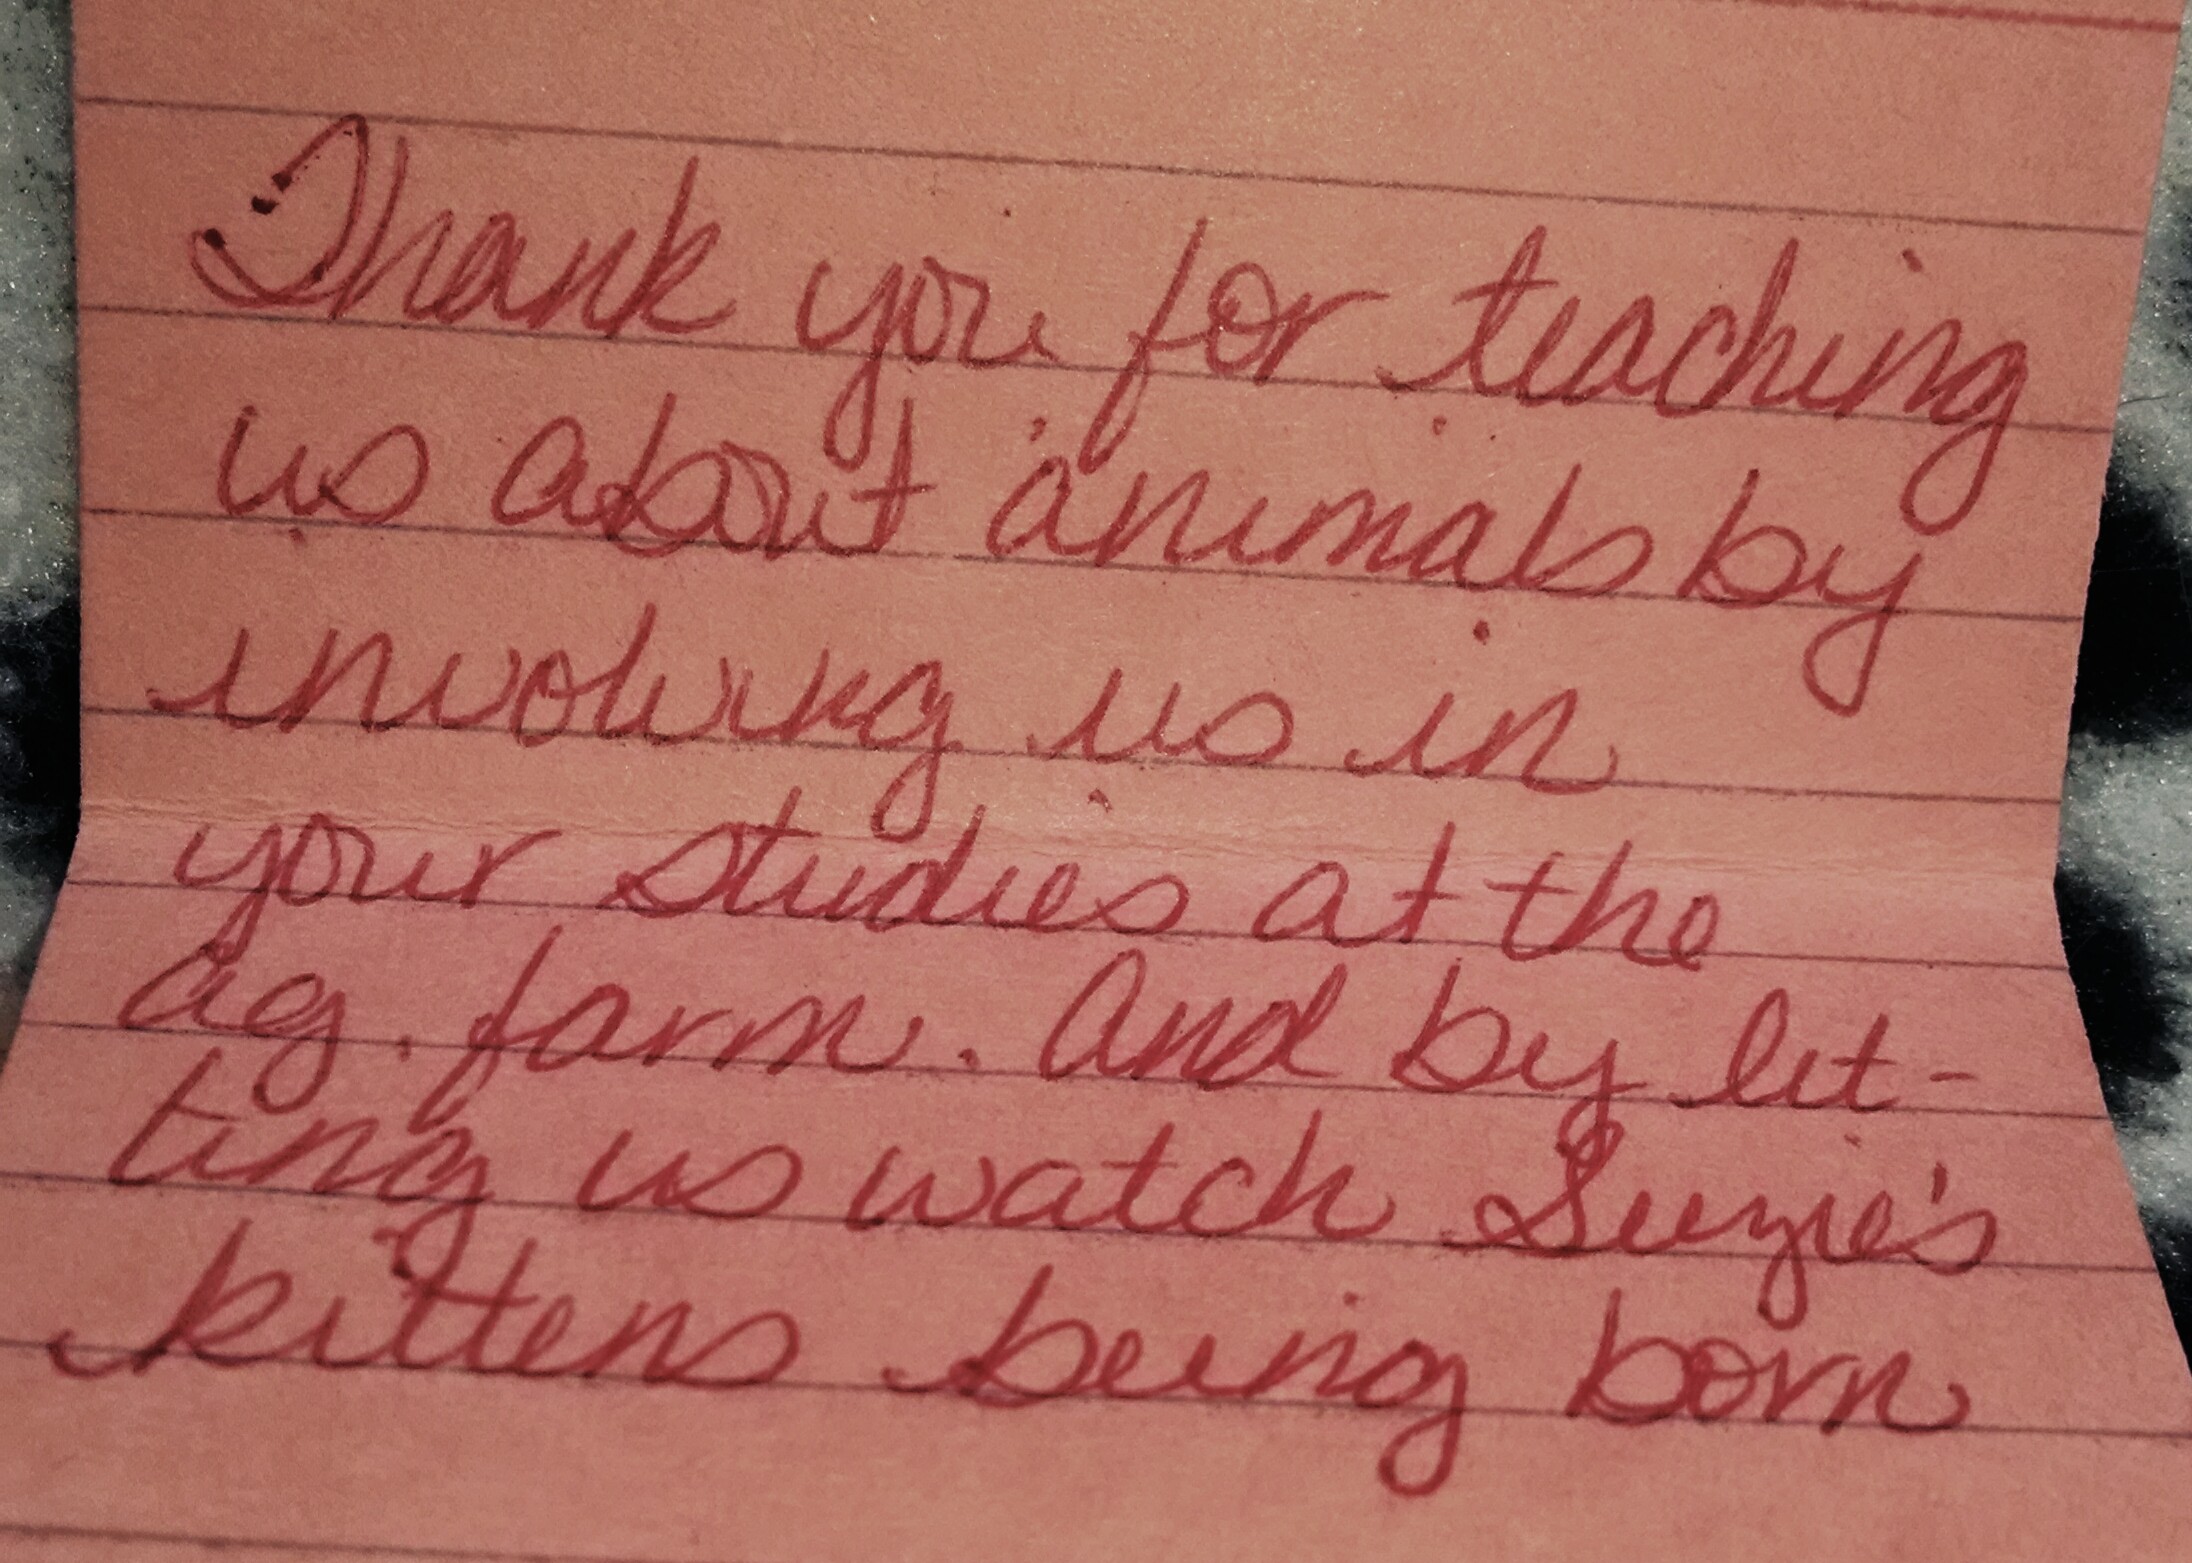 Thank you for teaching
us about animals by
involving us in
your studies at the
ag. farm. And by let-
ting us watch Suzie's
kittens being born